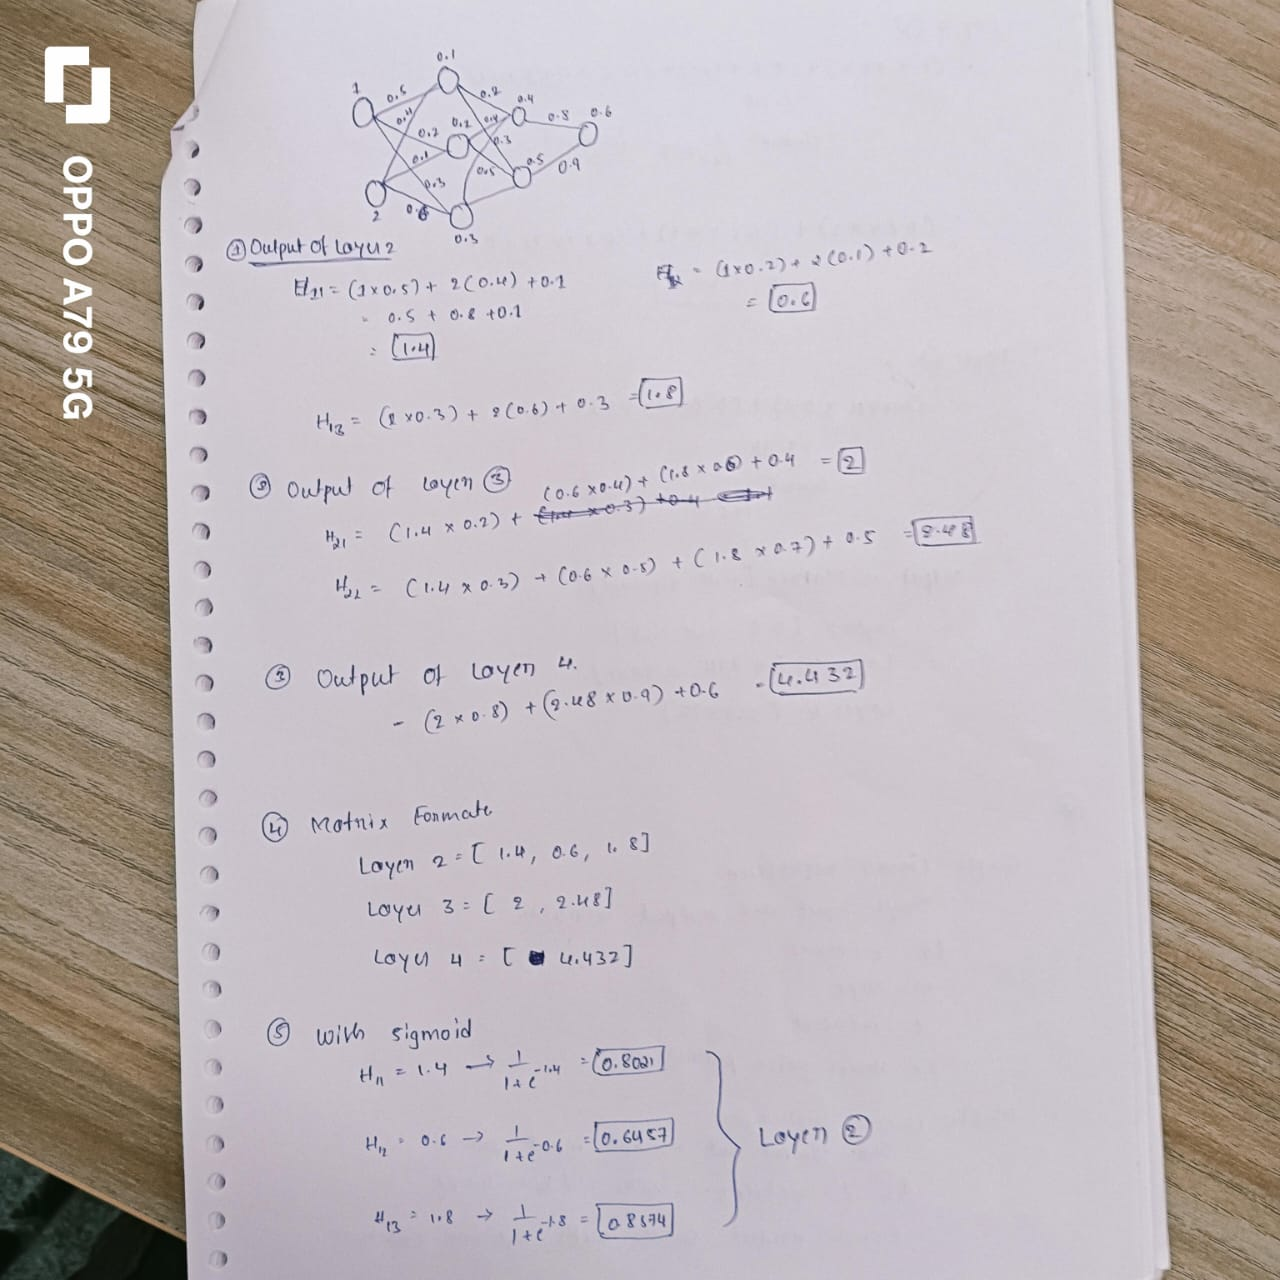 OPPO A79 5G
0.1
1 0.5 0.2 0.4 0.8 0.6
0.4 0.2 0.2 0.4 0.3
0.1 0.3 0.5 0.5 0.9
2 0.6
0.3
① Output of Layer 2
H11 = (1x0.5) + 2(0.4) + 0.1
= 0.5 + 0.8 + 0.1
= 1.4
= (1x0.2) + 2(0.1) + 0.2
= 0.6
H13 = (1x0.3) + 2(0.6) + 0.3 = 1.8
② Output of Layer ③
H21 = (1.4 x 0.2) + (0.6 x 0.4) + (1.8 x 0.6) + 0.4 = 2
H22 = (1.4 x 0.3) + (0.6 x 0.5) + (1.8 x 0.7) + 0.5 = 2.48
③ Output of Layer 4.
- (2 x 0.8) + (2.48 x 0.9) + 0.6 = 4.432
④ Matrix Formate
Layer 2 = [ 1.4, 0.6, 1.8]
Layer 3 = [ 2, 2.48]
Layer 4 = [ 4.432]
⑤ With sigmoid
H11 = 1.4 → 1/1+e^-1.4 = 0.8021
H12 = 0.6 → 1/1+e^-0.6 = 0.6457
Layer ②
H13 = 1.8 → 1/1+e^-1.8 = 0.8574